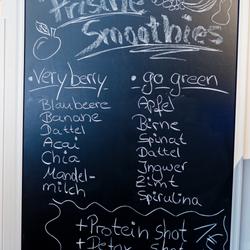 Frische
Smoothies
• very berry
Blaubeere
Banane
Dattel
Acai
Chia
Mandel-
milch
• go green
Apfel
Birne
Spinat
Dattel
Ingwer
Zimt
Spirulina
+ Protein shot
+ Detox shot